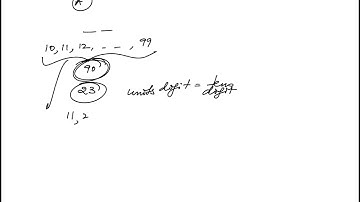 A
10, 11, 12, - - - , 99
90
23 units digit = ten digit
11, 2